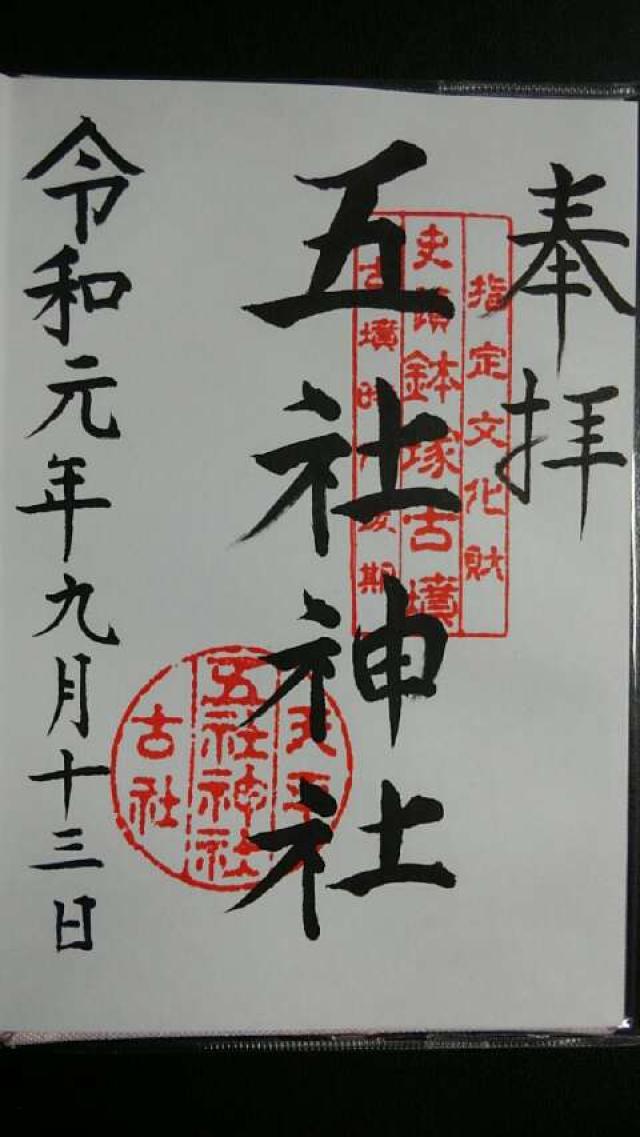 奉拝
指定文化財
史蹟鉢塚古墳
古墳時代後期
五社神社
天平
五社神社
古社
令和元年九月十三日